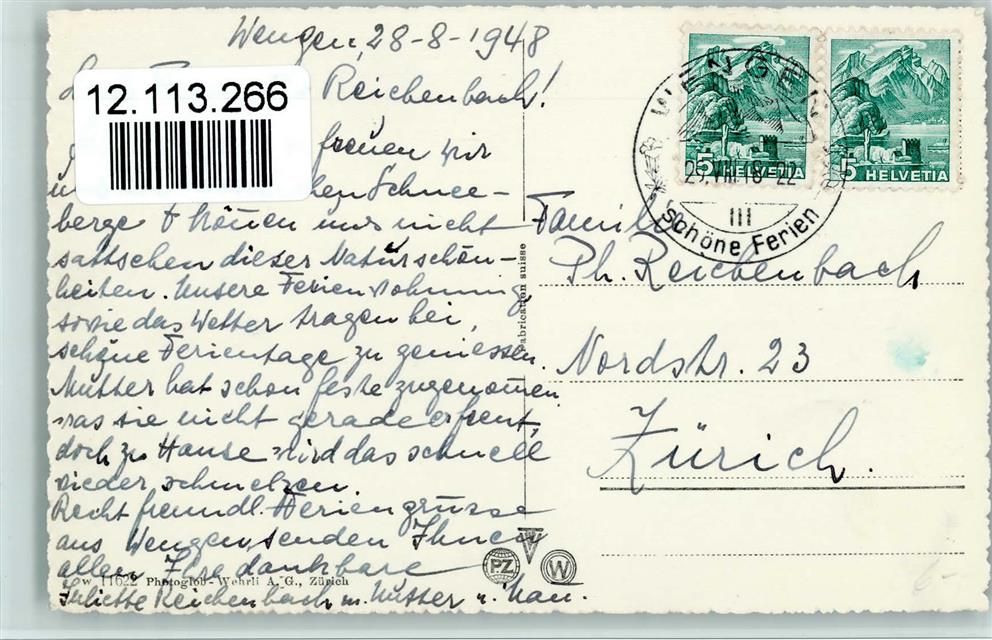 Wengen, 28-8-1948
12.113.266
Reichenbach!
freuen wir
Schnee-
berge & können uns nicht
sattsehen dieser Naturschön-
heiten. Unsere Ferienwohnung,
sowie das Wetter tragen bei,
schöne Ferientage zu geniessen.
Mutter hat schon feste zugenom̄en
was sie nicht gerade erfreut,
doch zu Hause wird das schnell
wieder schmelzen.
Recht freundl. Feriengrüsse
aus Wengen, senden Ihnen
allen, Ihre dankbare
Juliette Reichenbach m. Mutter u.
W 11622 Photoglob-Wehrli A. G., Zürich
Fabrication suisse
PZ
W
WENGEN
29. VIII 48-22
III
Schöne Ferien
5 HELVETIA
5 HELVETIA
Familie
Ph. Reichenbach
Nordstr. 23
Zürich.